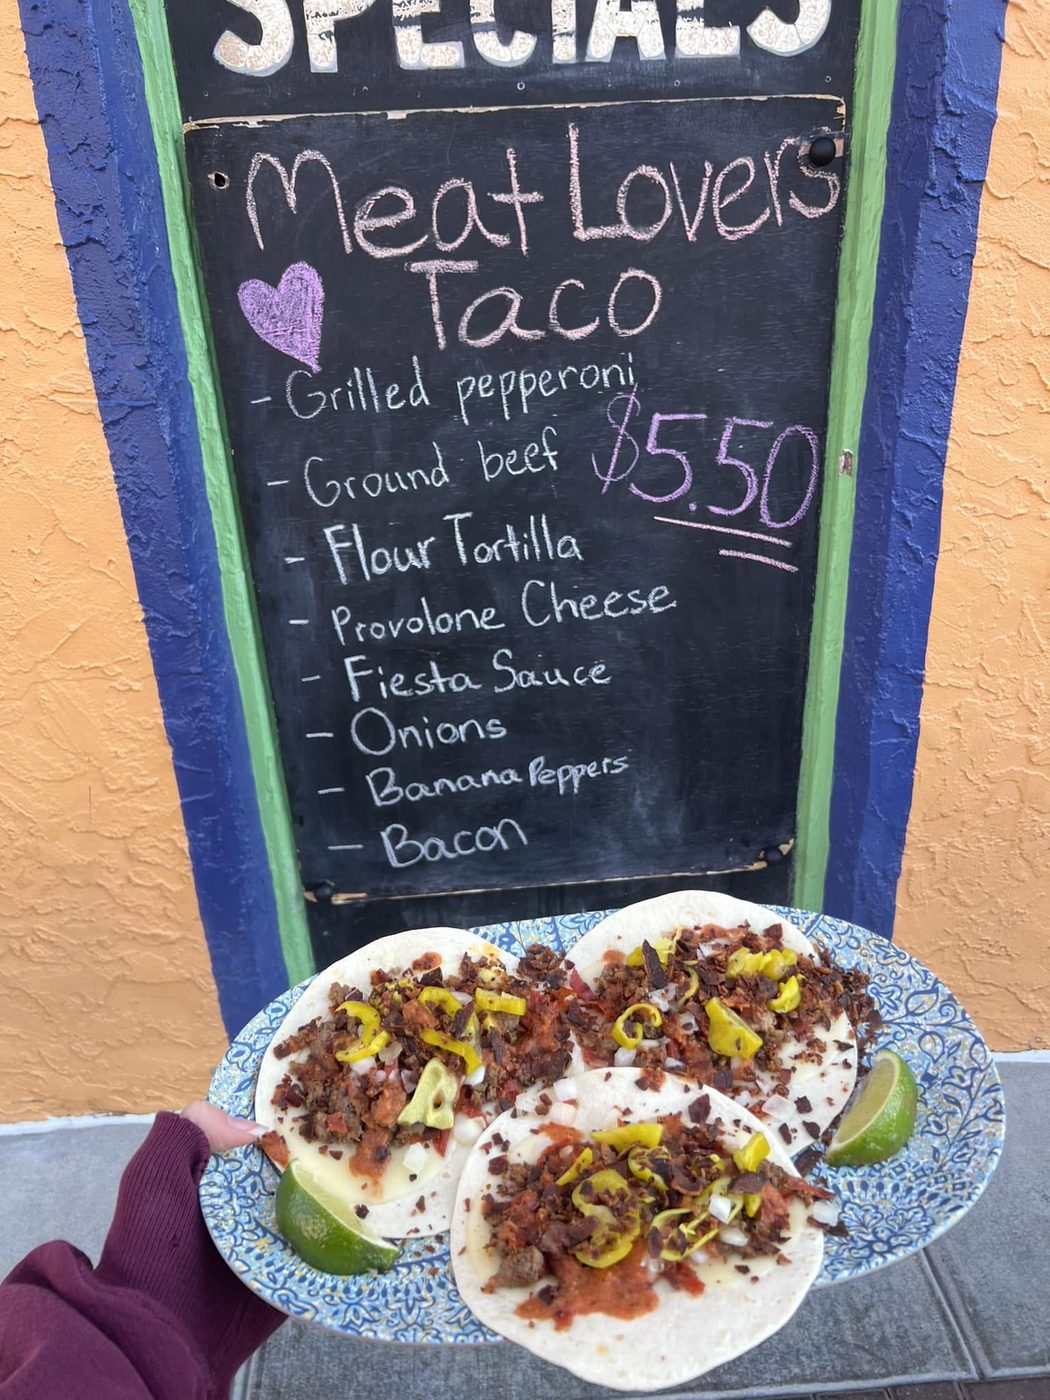 SPECIALS
Meat Lovers
Taco
- Grilled pepperoni
$5.50
- Ground beef
- Flour Tortilla
- Provolone Cheese
- Fiesta Sauce
- Onions
- Banana Peppers
- Bacon